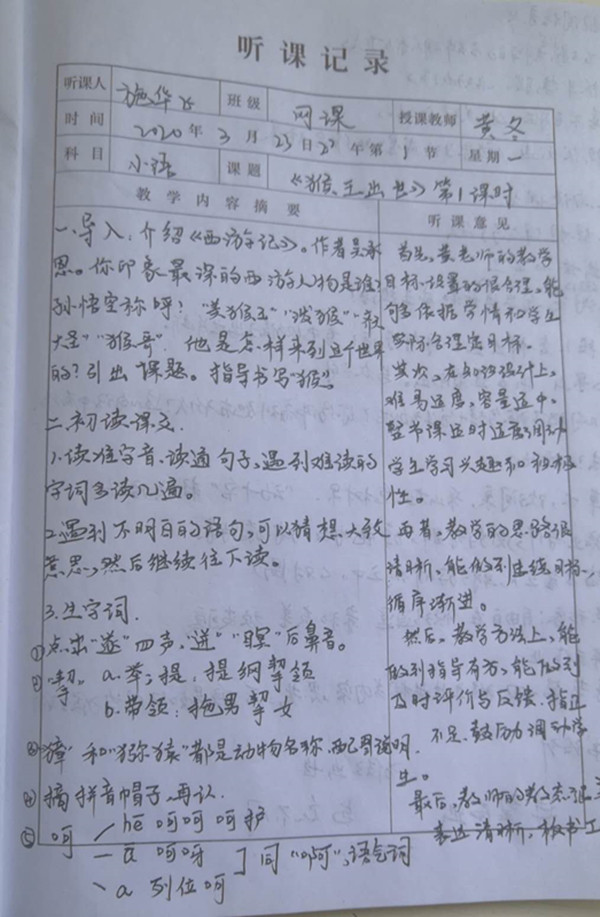 听课记录
听课人 施华 班级 网课 授课教师 黄冬
时间 2020年3月23日 午第1节 星期一
科目 小语 课题 《猴王出世》第1课时
教学内容摘要
一、导入,介绍《西游记》。作者吴承
恩。你印象最深的西游人物是谁?
孙悟空称呼?“美猴王”“泼猴”
大圣”“猴哥”他是怎样来到这个世界
的?引出课题。指导书写“猴”。
二、初读课文.
1.读准字音、读通句子,遇到难读的
字词多读几遍。
2.遇到不明白的语句,可以猜想大致
意思,然后继续往下读。
3.生字词.
①点出“遂”四声,“迸”“瞑”后鼻音。
②“挈” a.举;提:提纲挈领
b.带领:拖男挈女
③“獐”和“猕猿”都是动物名称,配图说明.
④摘拼音帽子,再认.
⑤呵 hē 呵呵 呵护
ā 呵呀 ] 同“啊”,语气词
a 列位呵
听课意见
首先,黄老师的教学
目标设置的很合理,能
够依据学情和学生
实际合理定目标.
其次,在知识设计上,
难易适度,容量适中.
整节课适时适度调动
学生学习兴趣和积极
性.
再者,教学的思路很
清晰,能做到连续目标,
循序渐进。
然后,教学方法上,能
做到指导有方,能做到
及时评价与反馈.指正
不足.鼓励调动学
生。
最后,教师的教态
表达清晰,板书工